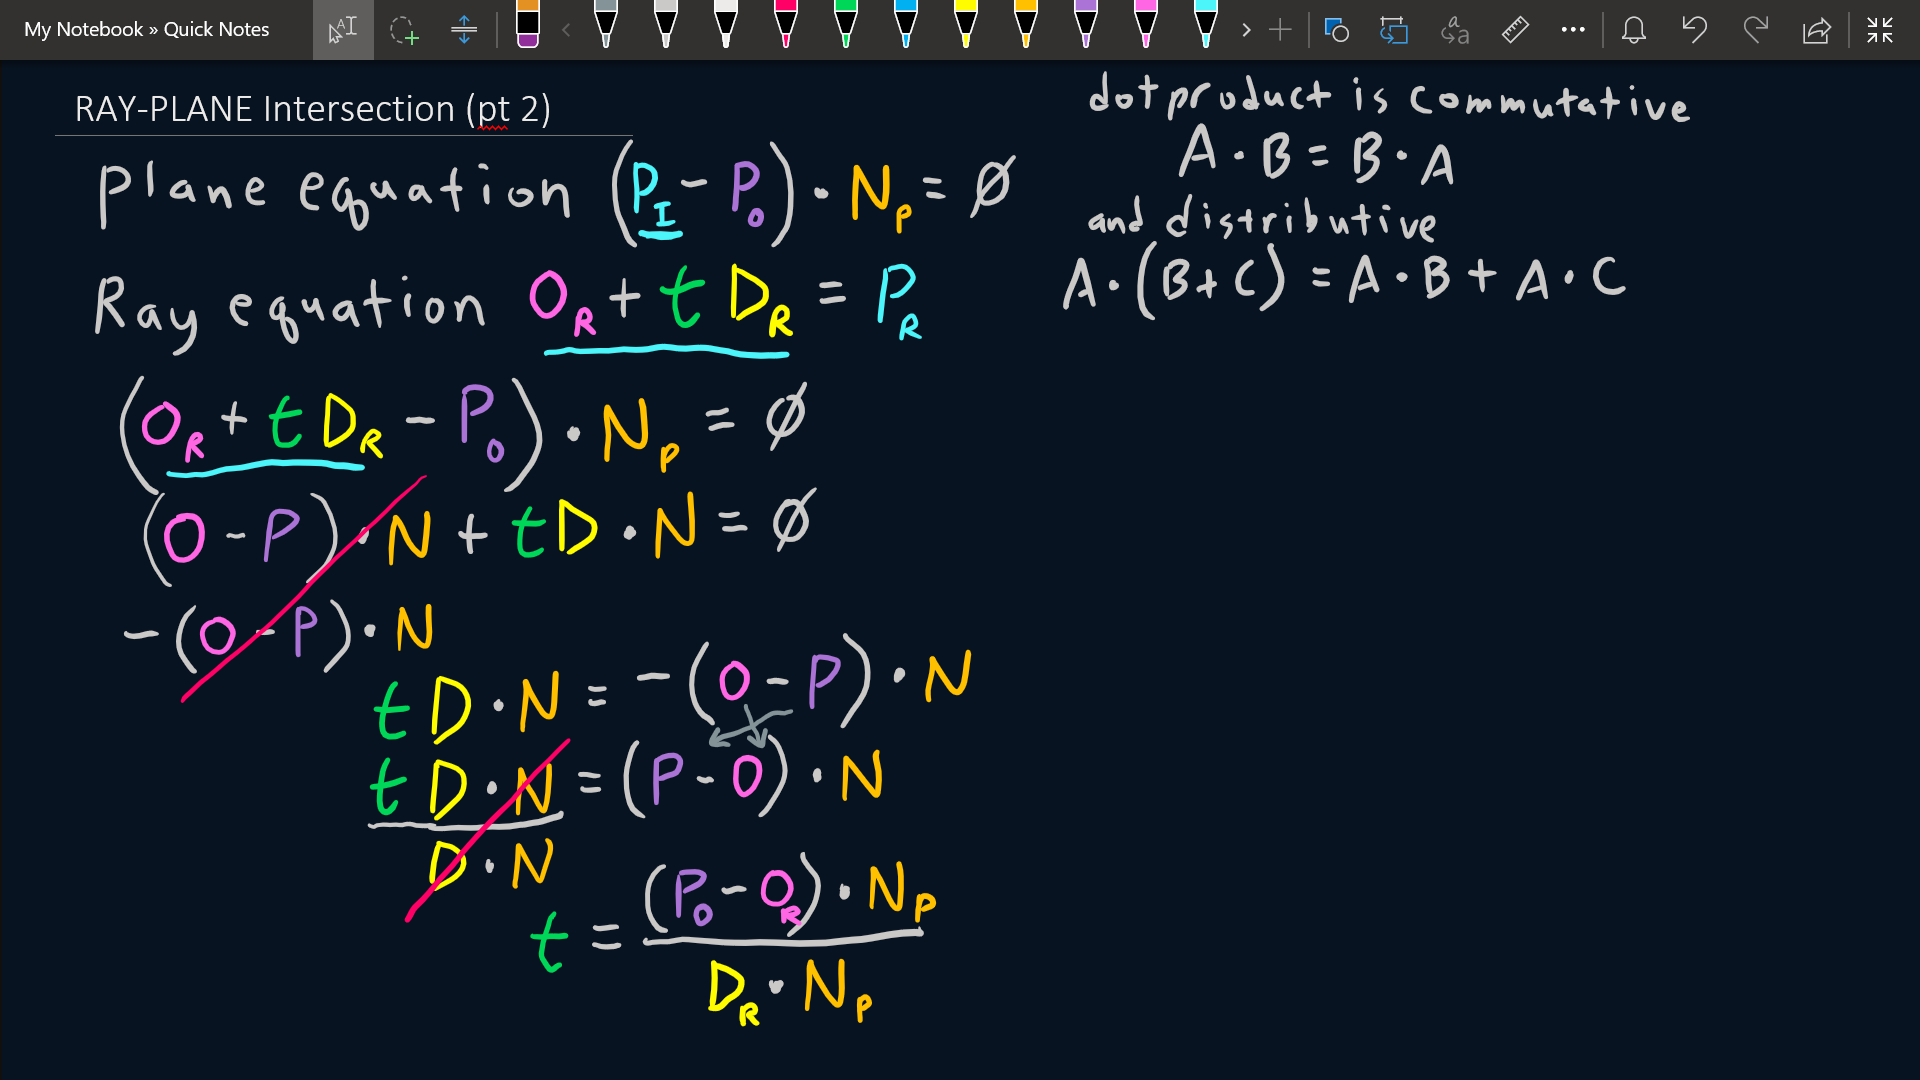 My Notebook » Quick Notes
RAY-PLANE Intersection (pt 2)
Plane equation (P_I - P_0) · N_P = Ø
Ray equation O_R + t D_R = P_R
(O_R + t D_R - P_0) · N_P = Ø
(O - P) · N + t D · N = Ø
- (O - P) · N
t D · N = - (O - P) · N
t D · N = (P - O) · N
D · N
t = (P_0 - O_R) · N_P
D_R · N_P
dot product is commutative
A · B = B · A
and distributive
A · (B + C) = A · B + A · C